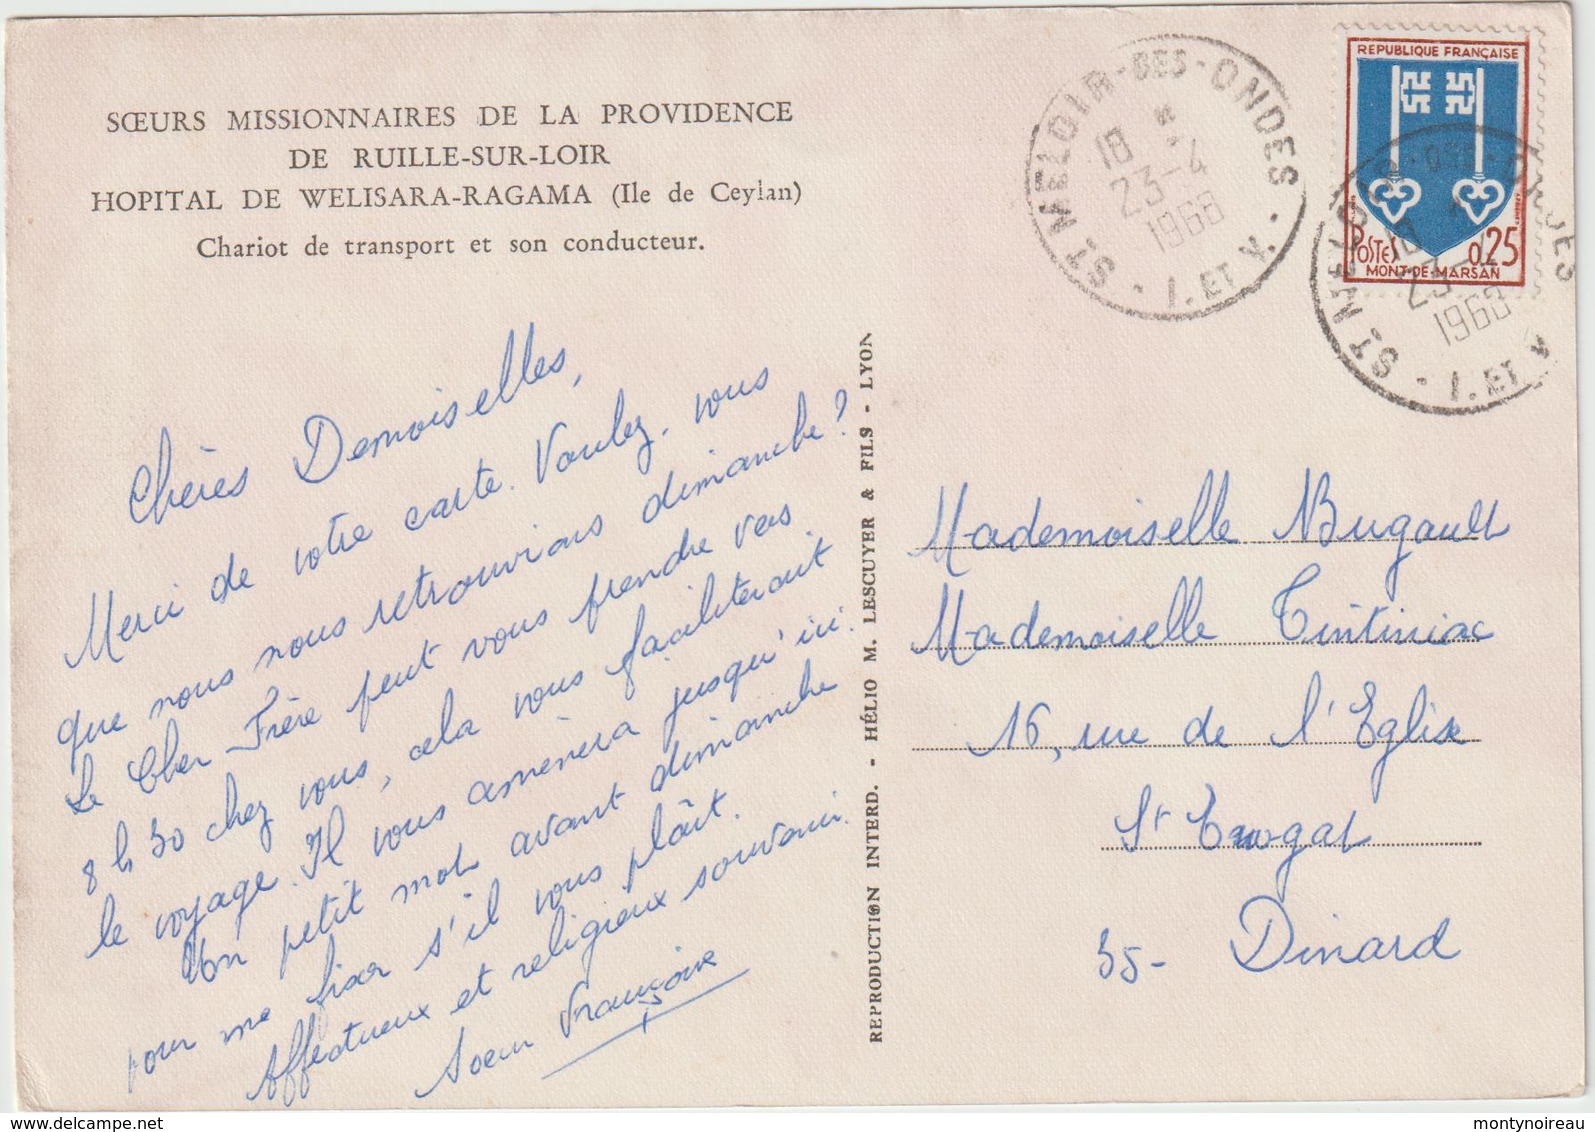 SŒURS MISSIONNAIRES DE LA PROVIDENCE
DE RUILLE-SUR-LOIR
HOPITAL DE WELISARA-RAGAMA (Ile de Ceylan)
Chariot de transport et son conducteur.
Chères Demoiselles,
Merci de votre carte. Voulez-vous
que nous nous retrouvions dimanche ?
Le Cher Frère peut vous prendre vers
8 h 30 chez vous, cela vous faciliterait
le voyage. Il vous amènera jusqu'ici.
Un petit mot avant dimanche
pour me fixer s'il vous plaît.
Affectueux et religieux souvenir.
Soeur Françoise
REPRODUCTION INTERD. - HÉLIO M. LESCUYER & FILS - LYON
ST MELOIR-DES-ONDES
18 H
23-4
1968
I. ET V.
REPUBLIQUE FRANÇAISE
POSTES 0,25
MONT-DE-MARSAN
ST MELOIR-DES-ONDES
18 H
23-4
1968
I. ET V.
Mademoiselle Bugault
Mademoiselle Tintiniac
16, rue de l'Eglise
St Enogat
35- Dinard
montynoireau